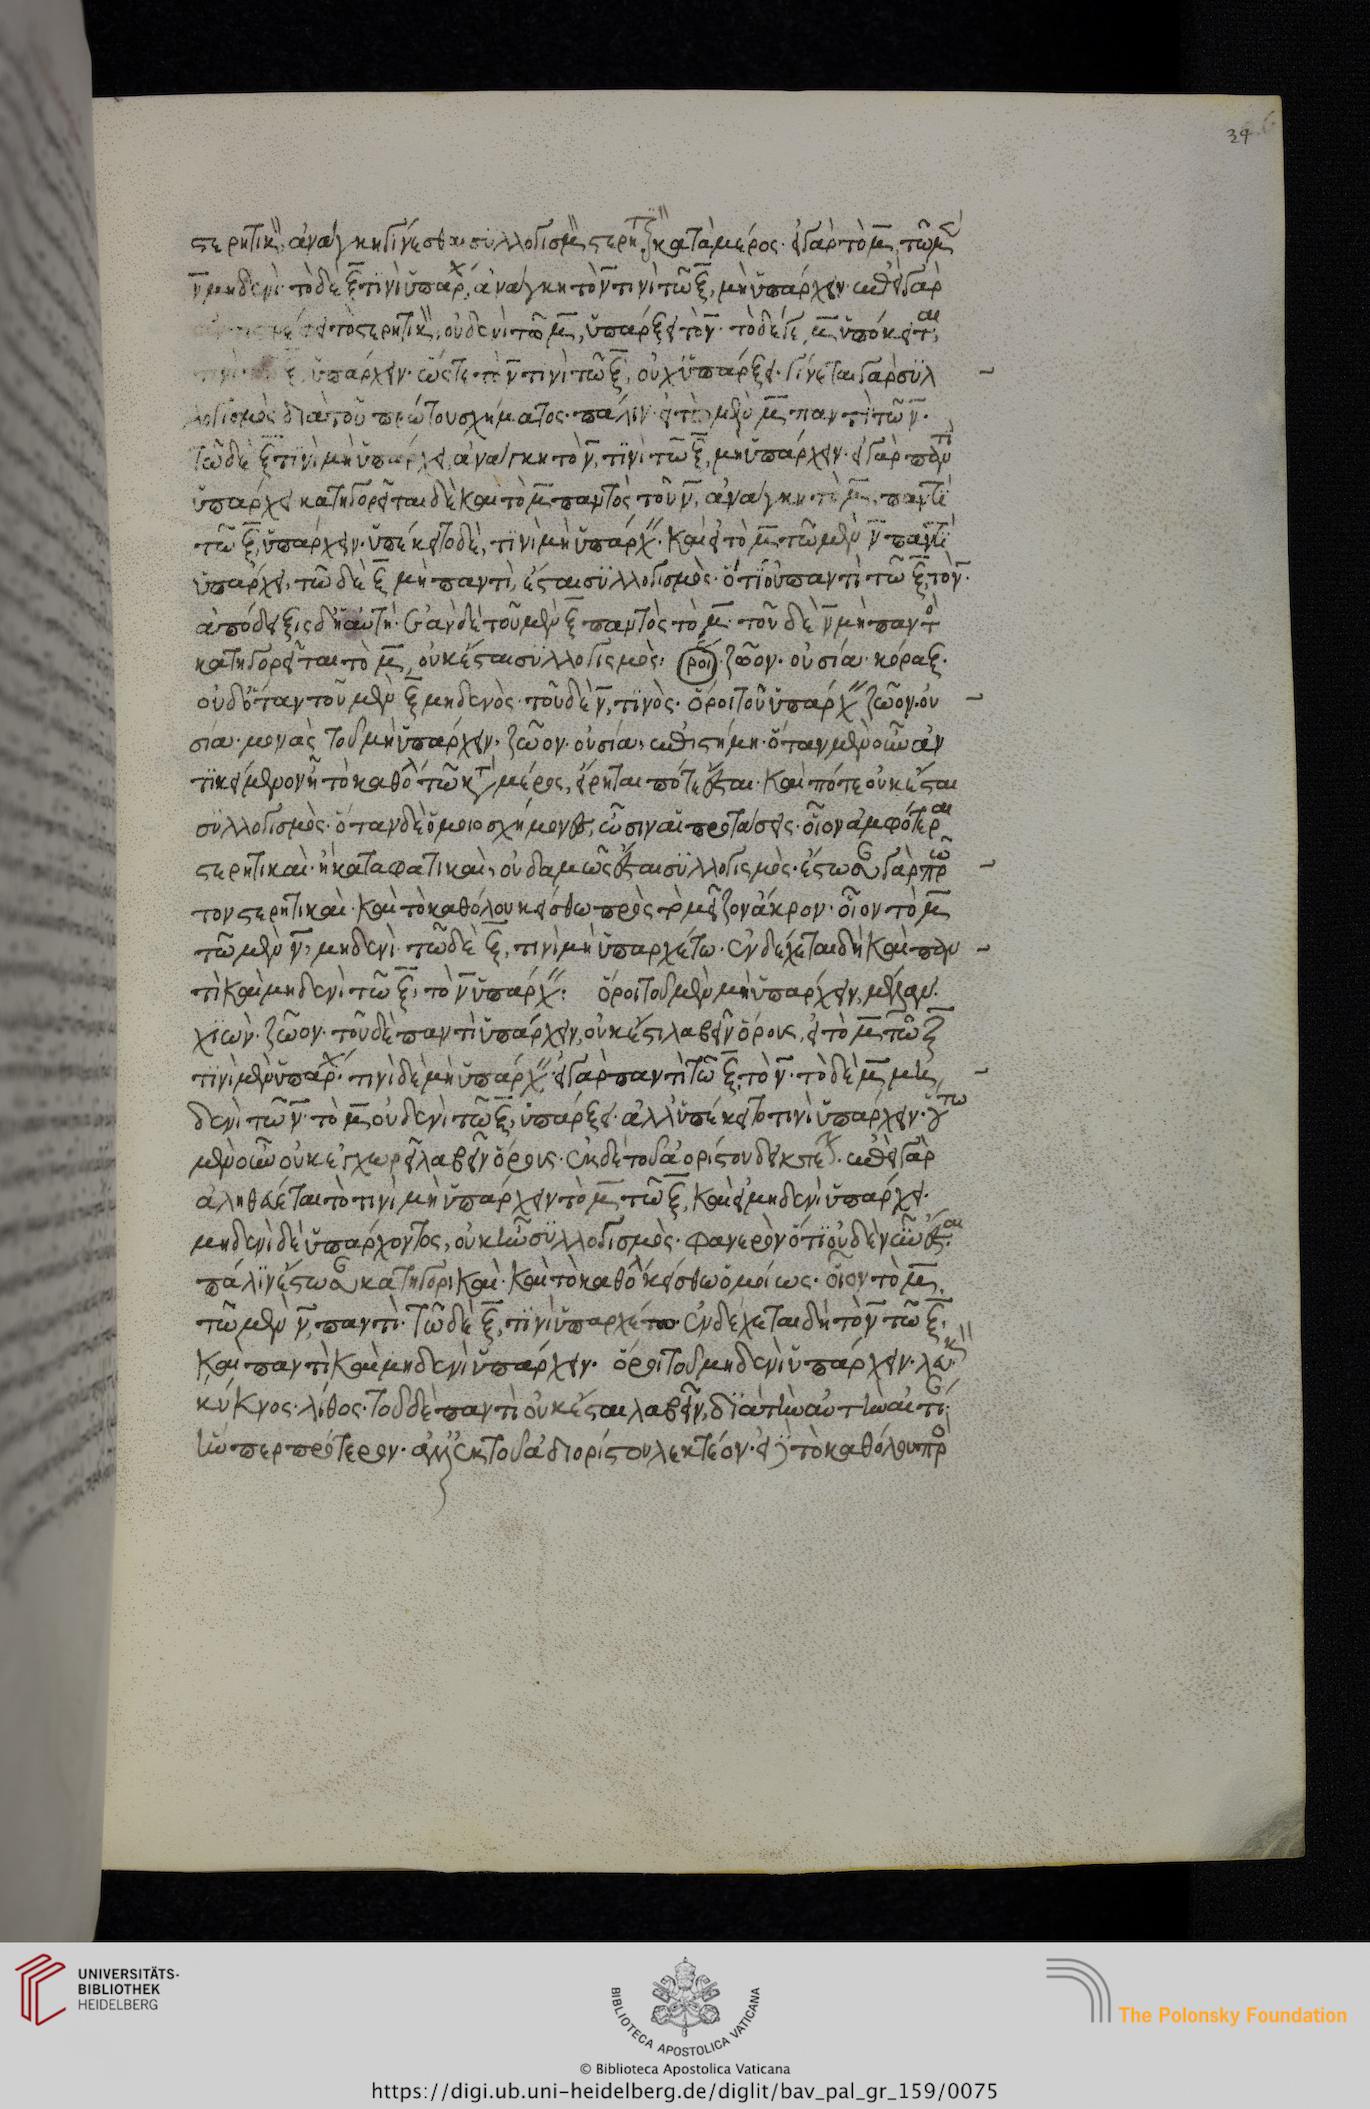 στερητικ, ἀνάγκη γίνεσθαι συλλογισμ στερητικ κατὰ μέρος· εἰ γὰρ τὸ μ̅ τῶ μὲν
ν̅ μηδενὶ· τὸ δὲ ξ̅ τινὶ ὑπάρχ, ἀνάγκη τὸ ν̅ τινὶ τῶ ξ̅, μὴ ὑπάρχειν· ἐπεὶ γὰρ
τὸ στερητικ, οὐδενὶ τῶ μ̅, ὑπάρξει τὸ ν̅· τὸ δέ γε μ̅ ὑπόκειται
τινὶ ξ̅, ὑπάρχειν· ὥστε τὸ ν̅ τινὶ τῶ ξ̅, οὐχ ὑπάρξει· γίνεται γὰρ συλ
λογισμὸς διὰ τοῦ πρώτου σχήματος· πάλιν εἰ τὸ μὲν μ̅ παντὶ τῶ ν̅·
τῶ δὲ ξ̅ τινὶ μὴ ὑπάρχει, ἀνάγκη τὸ ν̅, τινὶ τῶ ξ̅, μὴ ὑπάρχειν· εἰ γὰρ παντὶ
ὑπάρχει κατηγορεῖται δὲ καὶ τὸ μ̅ παντὸς τοῦ ν̅, ἀνάγκη τὸ μ̅, παντὶ
τῶ ξ̅, ὑπάρχειν· ὑπέκειτο δὲ, τινὶ μὴ ὑπάρχ· καὶ εἰ τὸ μ̅ τῶ μὲν ν̅ παντὶ
ὑπάρχει, τῶ δὲ ξ̅ μὴ παντὶ, ἔσται συλλογισμὸς· ὅτι οὐ παντὶ τῶ ξ̅, τὸ ν̅·
ἀπόδειξις δ' ἡ αὐτή· ἐὰν δὲ τοῦ μὲν ξ̅ παντὸς τὸ μ̅· τοῦ δὲ ν̅ μὴ παντὸ
κατηγορεῖται τὸ μ̅, οὐκ ἔσται συλλογισμός· ὅροι· ζῶον· οὐσία· κόραξ·
οὐδ' ὅταν τοῦ μὲν ξ̅ μηδενὸς· τοῦ δὲ ν̅, τινὸς· ὅροι τοῦ ὑπάρχ ζῶον· οὐ
σία· μονὰς τοῦ μὴ ὑπάρχειν· ζῶον· οὐσία· ἐπιστήμη· ὅταν μὲν οὖν ἀν
τικείμενον ἦ τὸ καθόλ τῶ κτ μέρος, εἴρηται πότε ἔσται· καὶ πότε οὐκ ἔσται
συλλογισμὸς· ὅταν δὲ ὁμοιοσχήμονες, ὦσιν αἱ προτάσεις· οἷον ἀμφότεραι
στερητικαὶ· ἢ καταφατικαὶ, οὐδαμῶς ἔσται συλλογισμὸς· ἔστωσαν γὰρ πρῶ
τον στερητικαὶ· καὶ τὸ καθόλου κείσθω πρὸς τὸ μεῖζον ἄκρον· οἷον τὸ μ̅
τῶ μὲν ν̅, μηδενὶ· τῶ δὲ ξ̅, τινὶ μὴ ὑπαρχέτω· ἐνδέχεται δὴ καὶ παν
τὶ καὶ μηδενὶ τῶ ξ̅, τὸ ν̅ ὑπάρχ: ὅροι τοῦ μὲν μὴ ὑπάρχειν, μέλαν·
χιών· ζῶον· τοῦ δὲ παντὶ ὑπάρχειν, οὐκ ἔστι λαβεῖν ὅρους, εἰ τὸ μ̅ τῶ ξ̅
τινὶ μὲν ὑπάρχ· τινὶ δὲ μὴ ὑπάρχ· εἰ γὰρ παντὶ τῶ ξ̅, τὸ ν̅· τὸ δὲ μ̅ μη
δενὶ τῶ ν̅· τὸ μ̅ οὐδενὶ τῶ ξ̅, ὑπάρξει· ἀλλ' ὑπέκειτο τινὶ ὑπάρχειν· οὕτω
μὲν οὖν οὐκ ἐγχωρεῖ λαβεῖν ὅρους· ἐκ δὲ τοῦ ἀορίστου δεικτέ· ἐπεὶ γὰρ
ἀληθεύεται τὸ τινὶ μὴ ὑπάρχειν τὸ μ̅ τῶ ξ̅, καὶ εἰ μηδενὶ ὑπάρχει·
μηδενὶ δὲ ὑπάρχοντος, οὐκ ἦν συλλογισμὸς· φανερὸν ὅτι οὐδὲ νῦν ἔσται·
πάλιν ἔστωσαν κατηγορικαὶ· καὶ τὸ καθόλ κείσθω ὁμοίως· οἷον τὸ μ̅,
τῶ μὲν ν̅, παντὶ· τῶ δὲ ξ̅, τινὶ ὑπαρχέτω· ἐνδέχεται δὴ τὸ ν̅ τῶ ξ̅,
καὶ παντὶ καὶ μηδενὶ ὑπάρχειν· ὅροι τοῦ μηδενὶ ὑπάρχειν· λευκ
κύκνος· λίθος· τοῦ δὲ παντὶ οὐκ ἔσται λαβεῖν, διὰ τὴν αὐτὴν αἰτίαν
ἥνπερ πρότερον· ἀλλ' ἐκ τοῦ ἀδιορίστου λεκτέον· εἰ δὲ τὸ καθόλου πρὸ
34
UNIVERSITÄTS-
BIBLIOTHEK
HEIDELBERG
BIBLIOTECA APOSTOLICA VATICANA
The Polonsky Foundation
© Biblioteca Apostolica Vaticana
https://digi.ub.uni-heidelberg.de/diglit/bav_pal_gr_159/0075